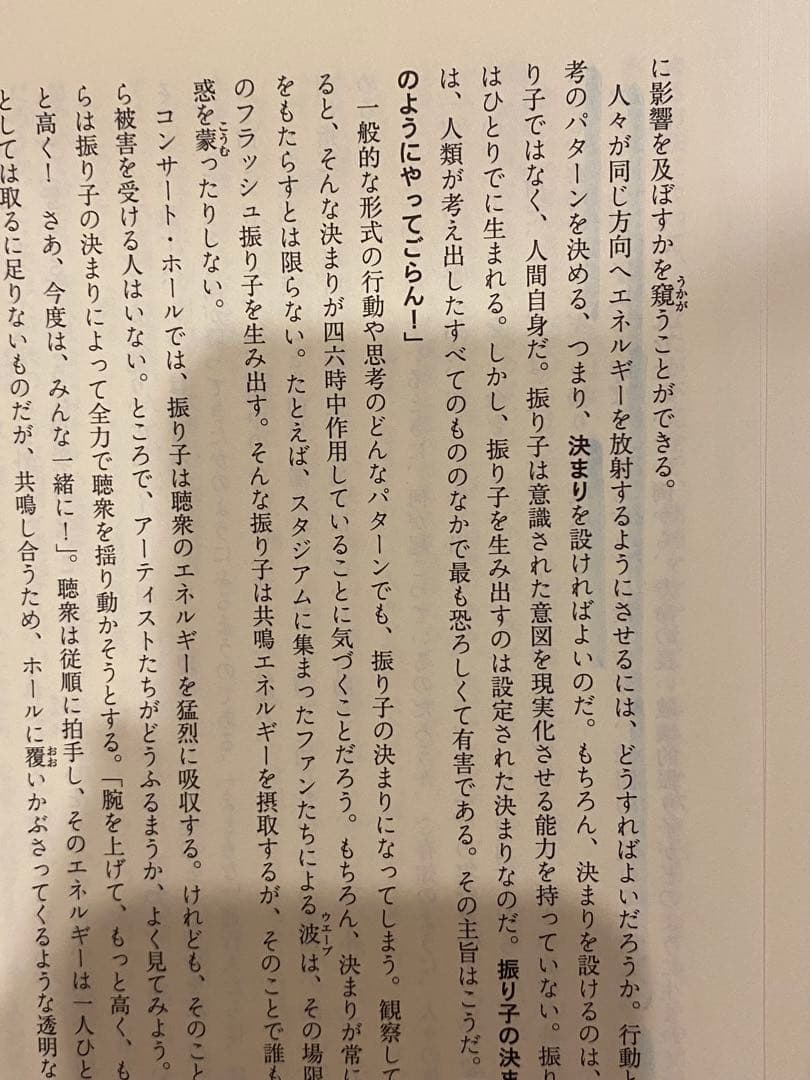 に影響を及ぼすかを窺うことができる。
人々が同じ方向へエネルギーを放射するようにさせるには、どうすればよいだろうか。行動と
考のパターンを決める、つまり、決まりを設ければよいのだ。もちろん、決まりを設けるのは、
り子ではなく、人間自身だ。振り子は意識された意図を現実化させる能力を持っていない。振り
はひとりでに生まれる。しかし、振り子を生み出すのは設定された決まりなのだ。振り子の決ま
は、人類が考え出したすべてのもののなかで最も恐ろしくて有害である。その主旨はこうだ。
のようにやってごらん！」
一般的な形式の行動や思考のどんなパターンでも、振り子の決まりになってしまう。観察して
ると、そんな決まりが四六時中作用していることに気づくことだろう。もちろん、決まりが常に
をもたらすとは限らない。たとえば、スタジアムに集まったファンたちによる波は、その場限
のフラッシュ振り子を生み出す。そんな振り子は共鳴エネルギーを摂取するが、そのことで誰も
惑を蒙ったりしない。
コンサート・ホールでは、振り子は聴衆のエネルギーを猛烈に吸収する。けれども、そのこと
ら被害を受ける人はいない。ところで、アーティストたちがどうふるまうか、よく見てみよう。
らは振り子の決まりによって全力で聴衆を揺り動かそうとする。「腕を上げて、もっと高く、も
と高く！　さあ、今度は、みんな一緒に！」。聴衆は従順に拍手し、そのエネルギーは一人ひと
としては取るに足りないものだが、共鳴し合うため、ホールに覆いかぶさってくるような透明な